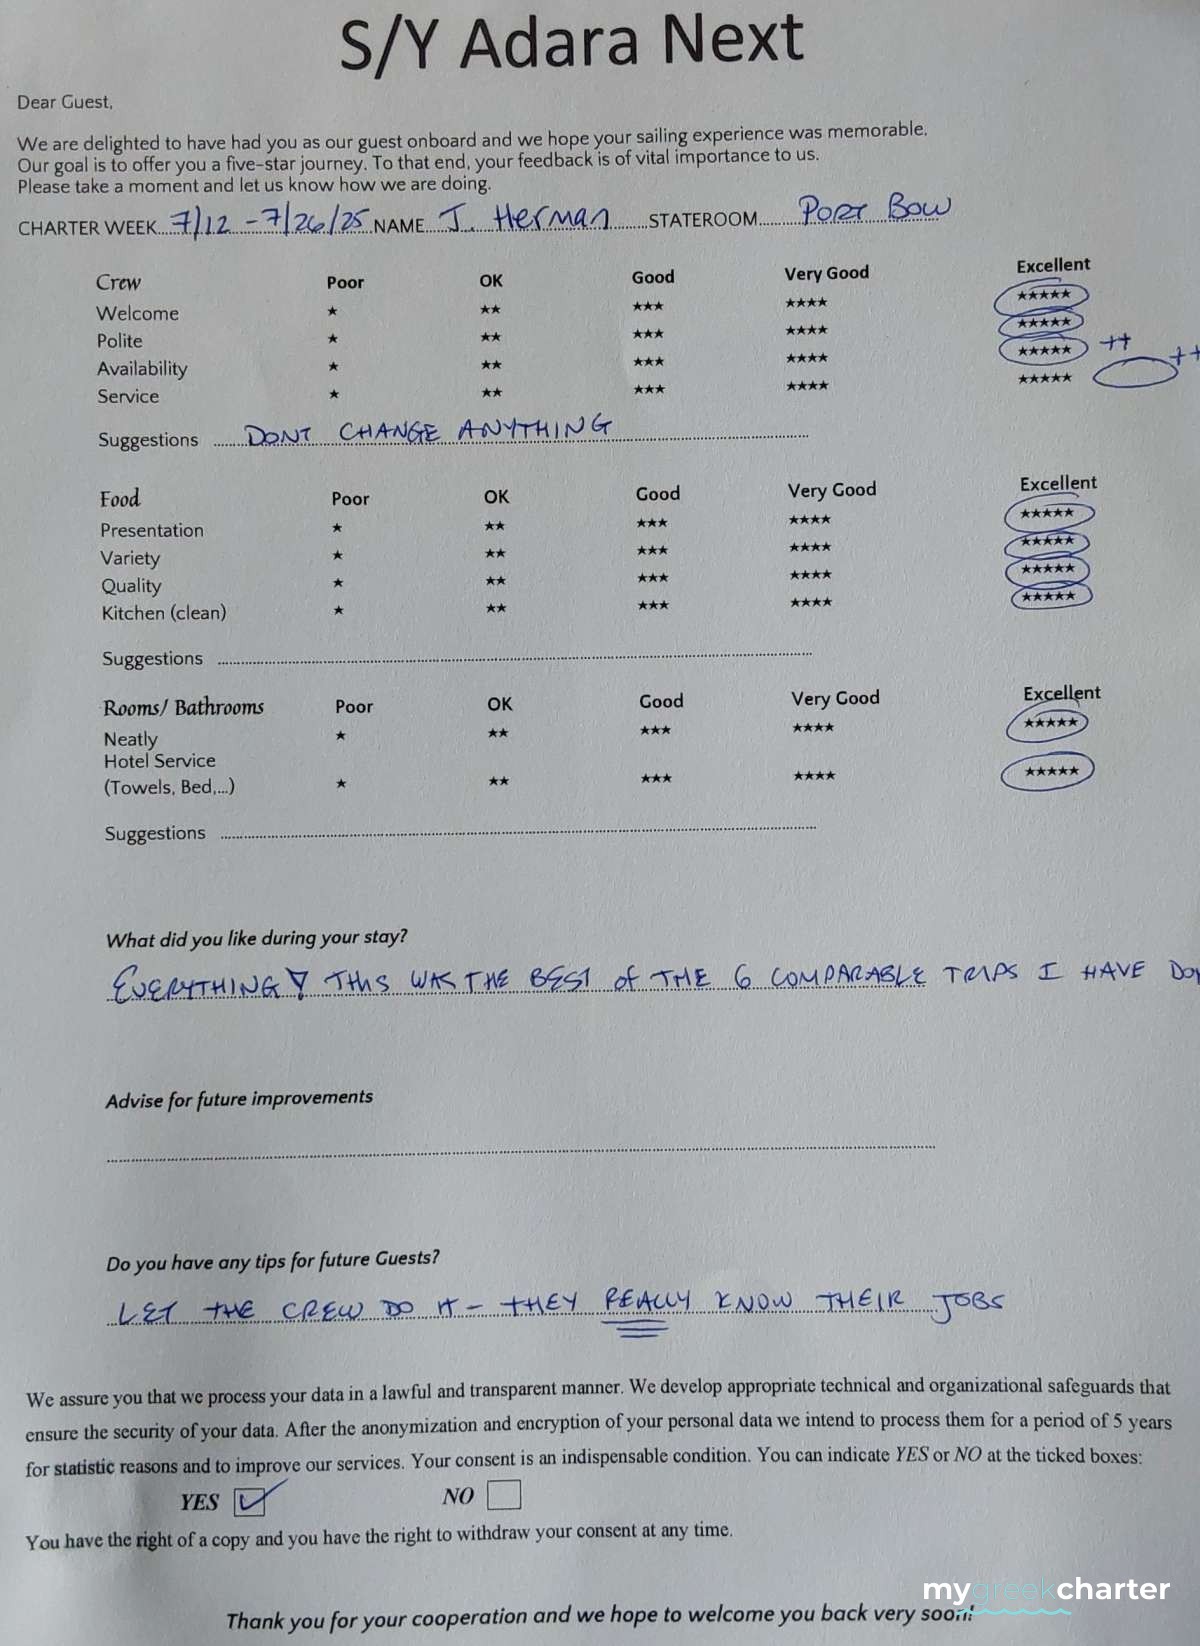 S/Y Adara Next
Dear Guest,
We are delighted to have had you as our guest onboard and we hope your sailing experience was memorable.
Our goal is to offer you a five-star journey. To that end, your feedback is of vital importance to us.
Please take a moment and let us know how we are doing.
CHARTER WEEK 7/12 - 7/26/25 NAME J. Herman STATEROOM PORT BOW
Crew Poor OK Good Very Good Excellent
Welcome ★ ★★ ★★★ ★★★★ ★★★★★
Polite ★ ★★ ★★★ ★★★★ ★★★★★
Availability ★ ★★ ★★★ ★★★★ ★★★★★ ++
Service ★ ★★ ★★★ ★★★★ ★★★★★ ++
Suggestions DONT CHANGE ANYTHING
Food Poor OK Good Very Good Excellent
Presentation ★ ★★ ★★★ ★★★★ ★★★★★
Variety ★ ★★ ★★★ ★★★★ ★★★★★
Quality ★ ★★ ★★★ ★★★★ ★★★★★
Kitchen (clean) ★ ★★ ★★★ ★★★★ ★★★★★
Suggestions
Rooms/ Bathrooms Poor OK Good Very Good Excellent
Neatly ★ ★★ ★★★ ★★★★ ★★★★★
Hotel Service
(Towels, Bed,...) ★ ★★ ★★★ ★★★★ ★★★★★
Suggestions
What did you like during your stay?
EVERYTHING! THIS WAS THE BEST of THE 6 COMPARABLE TRIPS I HAVE
Advise for future improvements
Do you have any tips for future Guests?
LET THE CREW DO IT - THEY REALLY KNOW THEIR JOBS
We assure you that we process your data in a lawful and transparent manner. We develop appropriate technical and organizational safeguards that
ensure the security of your data. After the anonymization and encryption of your personal data we intend to process them for a period of 5 years
for statistic reasons and to improve our services. Your consent is an indispensable condition. You can indicate YES or NO at the ticked boxes:
YES NO
You have the right of a copy and you have the right to withdraw your consent at any time.
mygreekcharter
Thank you for your cooperation and we hope to welcome you back very soon!